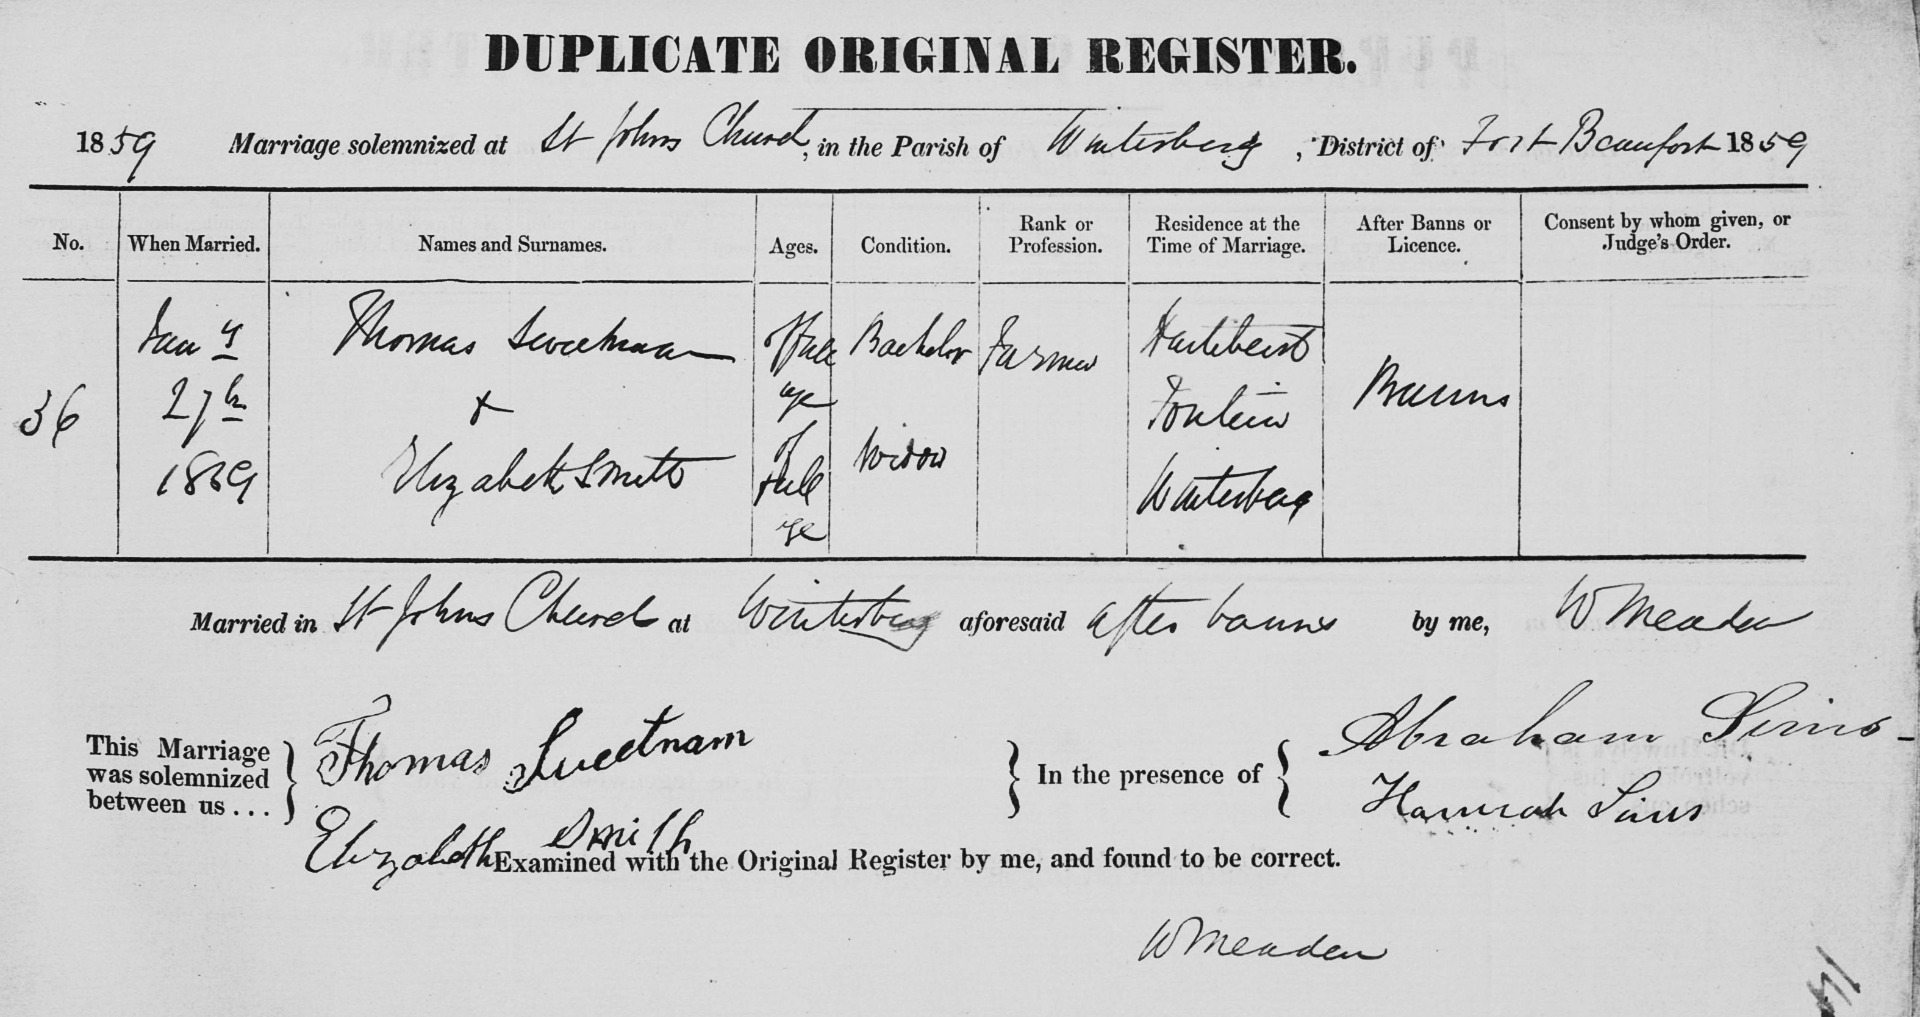 DUPLICATE ORIGINAL REGISTER.
1859 Marriage solemnized at St Johns Church, in the Parish of Winterberg, District of Fort Beaufort 1859
No. When Married. Names and Surnames. Ages. Condition. Rank or Profession. Residence at the Time of Marriage. After Banns or Licence. Consent by whom given, or Judge's Order.
36 Jany 27th 1859 Thomas Sweetnam & Elizabeth Smith Of full age Of full age Bachelor Widow Farmer Fontein Winterberg Banns
Married in St Johns Church at Winterberg aforesaid after banns by me, W Meaden
This Marriage was solemnized between us ... Thomas Sweetnam In the presence of Abraham Sims
Elizabeth Smith Hannah Sims
Examined with the Original Register by me, and found to be correct.
W Meaden